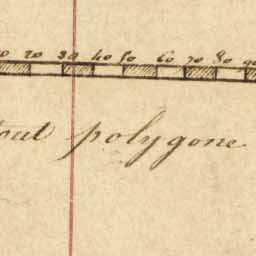 20 30 40 50 60 70 80
tout polygone